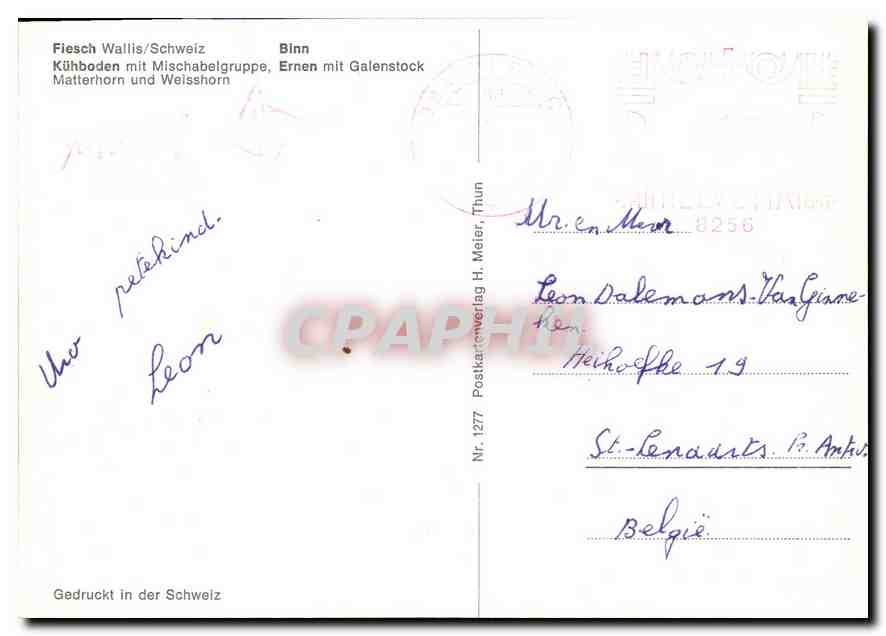 Fiesch Wallis/Schweiz
Kühboden mit Mischabelgruppe,
Matterhorn und Weisshorn
Binn
Ernen mit Galenstock
8256
Uw petekind.
Leon
CPAPHIL
Nr. 1277 Postkartenverlag H. Meier, Thun
Mr. en Mevr
Leon Dalemans-VanGinne-
ken.
Heihoefke 19
St.-Lenaarts. Pr. Antw.
België.
Gedruckt in der Schweiz